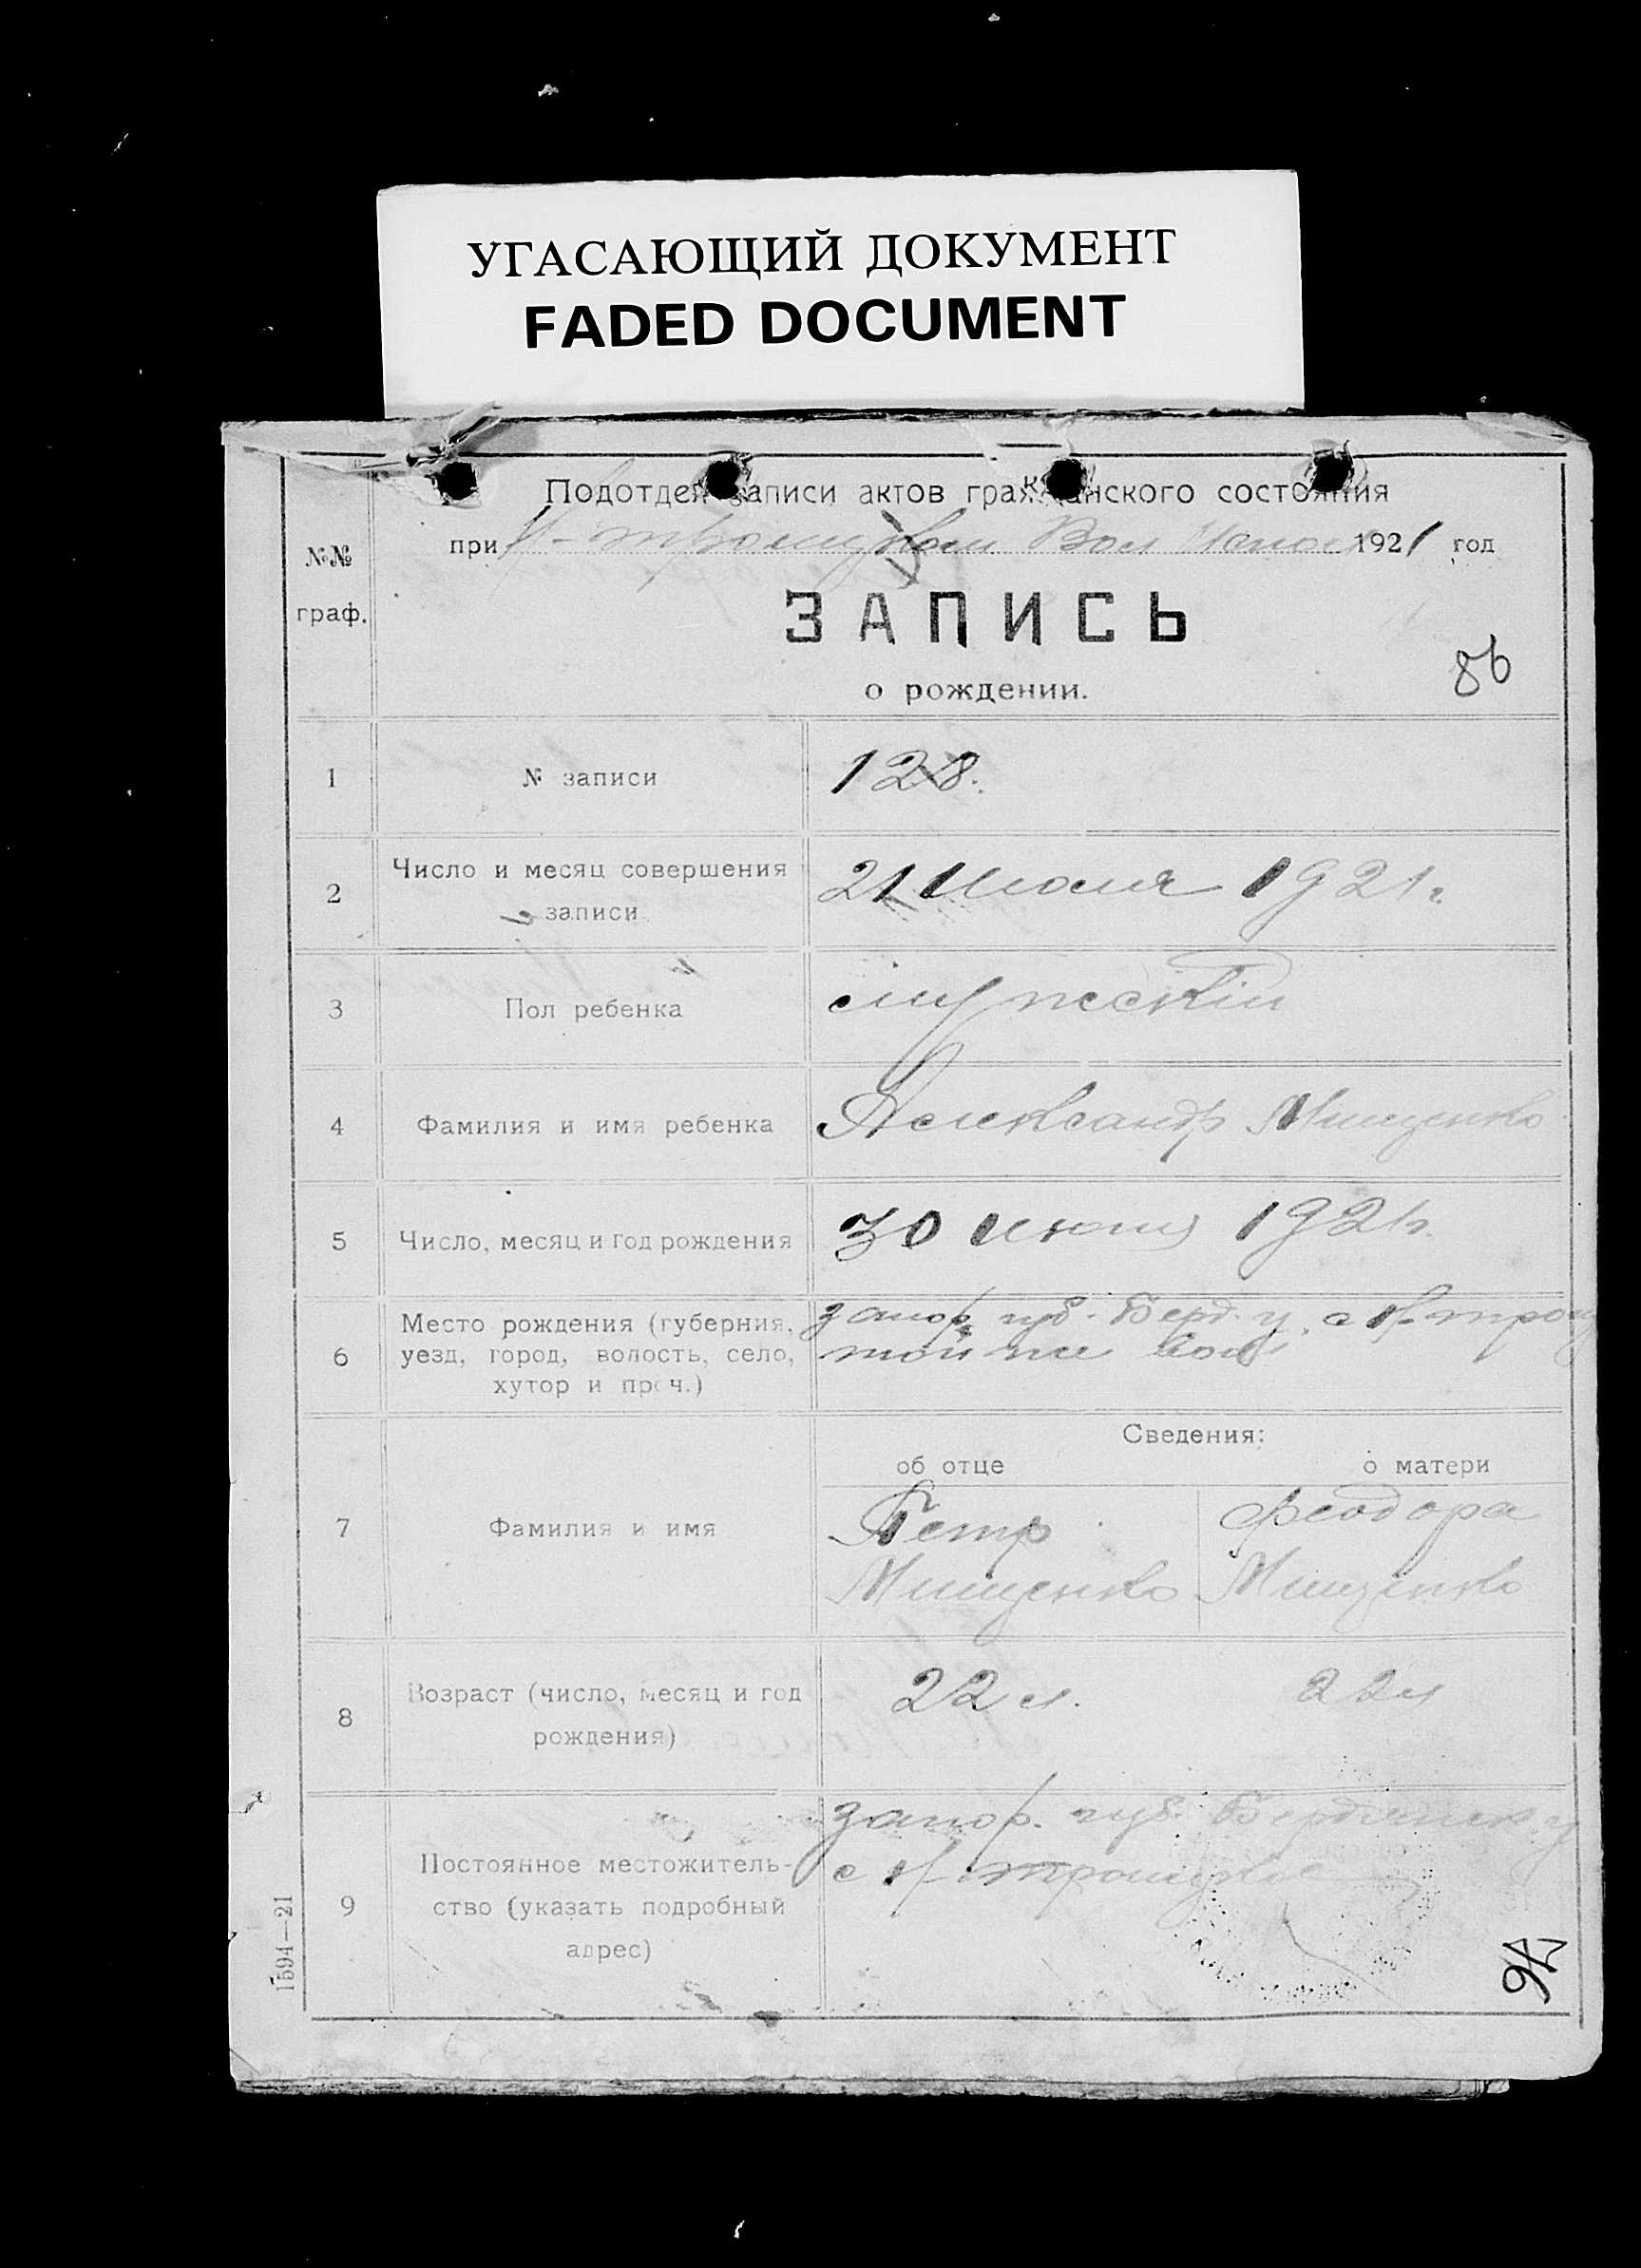 УГАСАЮЩИЙ ДОКУМЕНТ
FADED DOCUMENT
Подотдел записи актов гражданского состояния
при Н-троицком Вол 1921 год
№№
граф.
ЗАПИСЬ
о рождении.
86
1 № записи 128.
2 Число и месяц совершения
записи
21 Июля 1921 г.
3 Пол ребенка мужескiй
4 Фамилия и имя ребенка Александр Мищенко
5 Число, месяц и год рождения 30 июня 1921 г.
6 Место рождения (губерния,
уезд, город, волость, село,
хутор и проч.)
запор. губ. Берд. у. с Н-троиц
той же вол
Сведения:
об отце о матери
7 Фамилия и имя
Петр Феодора
Мищенко Мищенко
8 Возраст (число, месяц и год
рождения)
22 л. 22 л
9 Постоянное местожитель-
ство (указать подробный
адрес)
запор. губ. Бердянск у
с Н-троицкое
1594—21